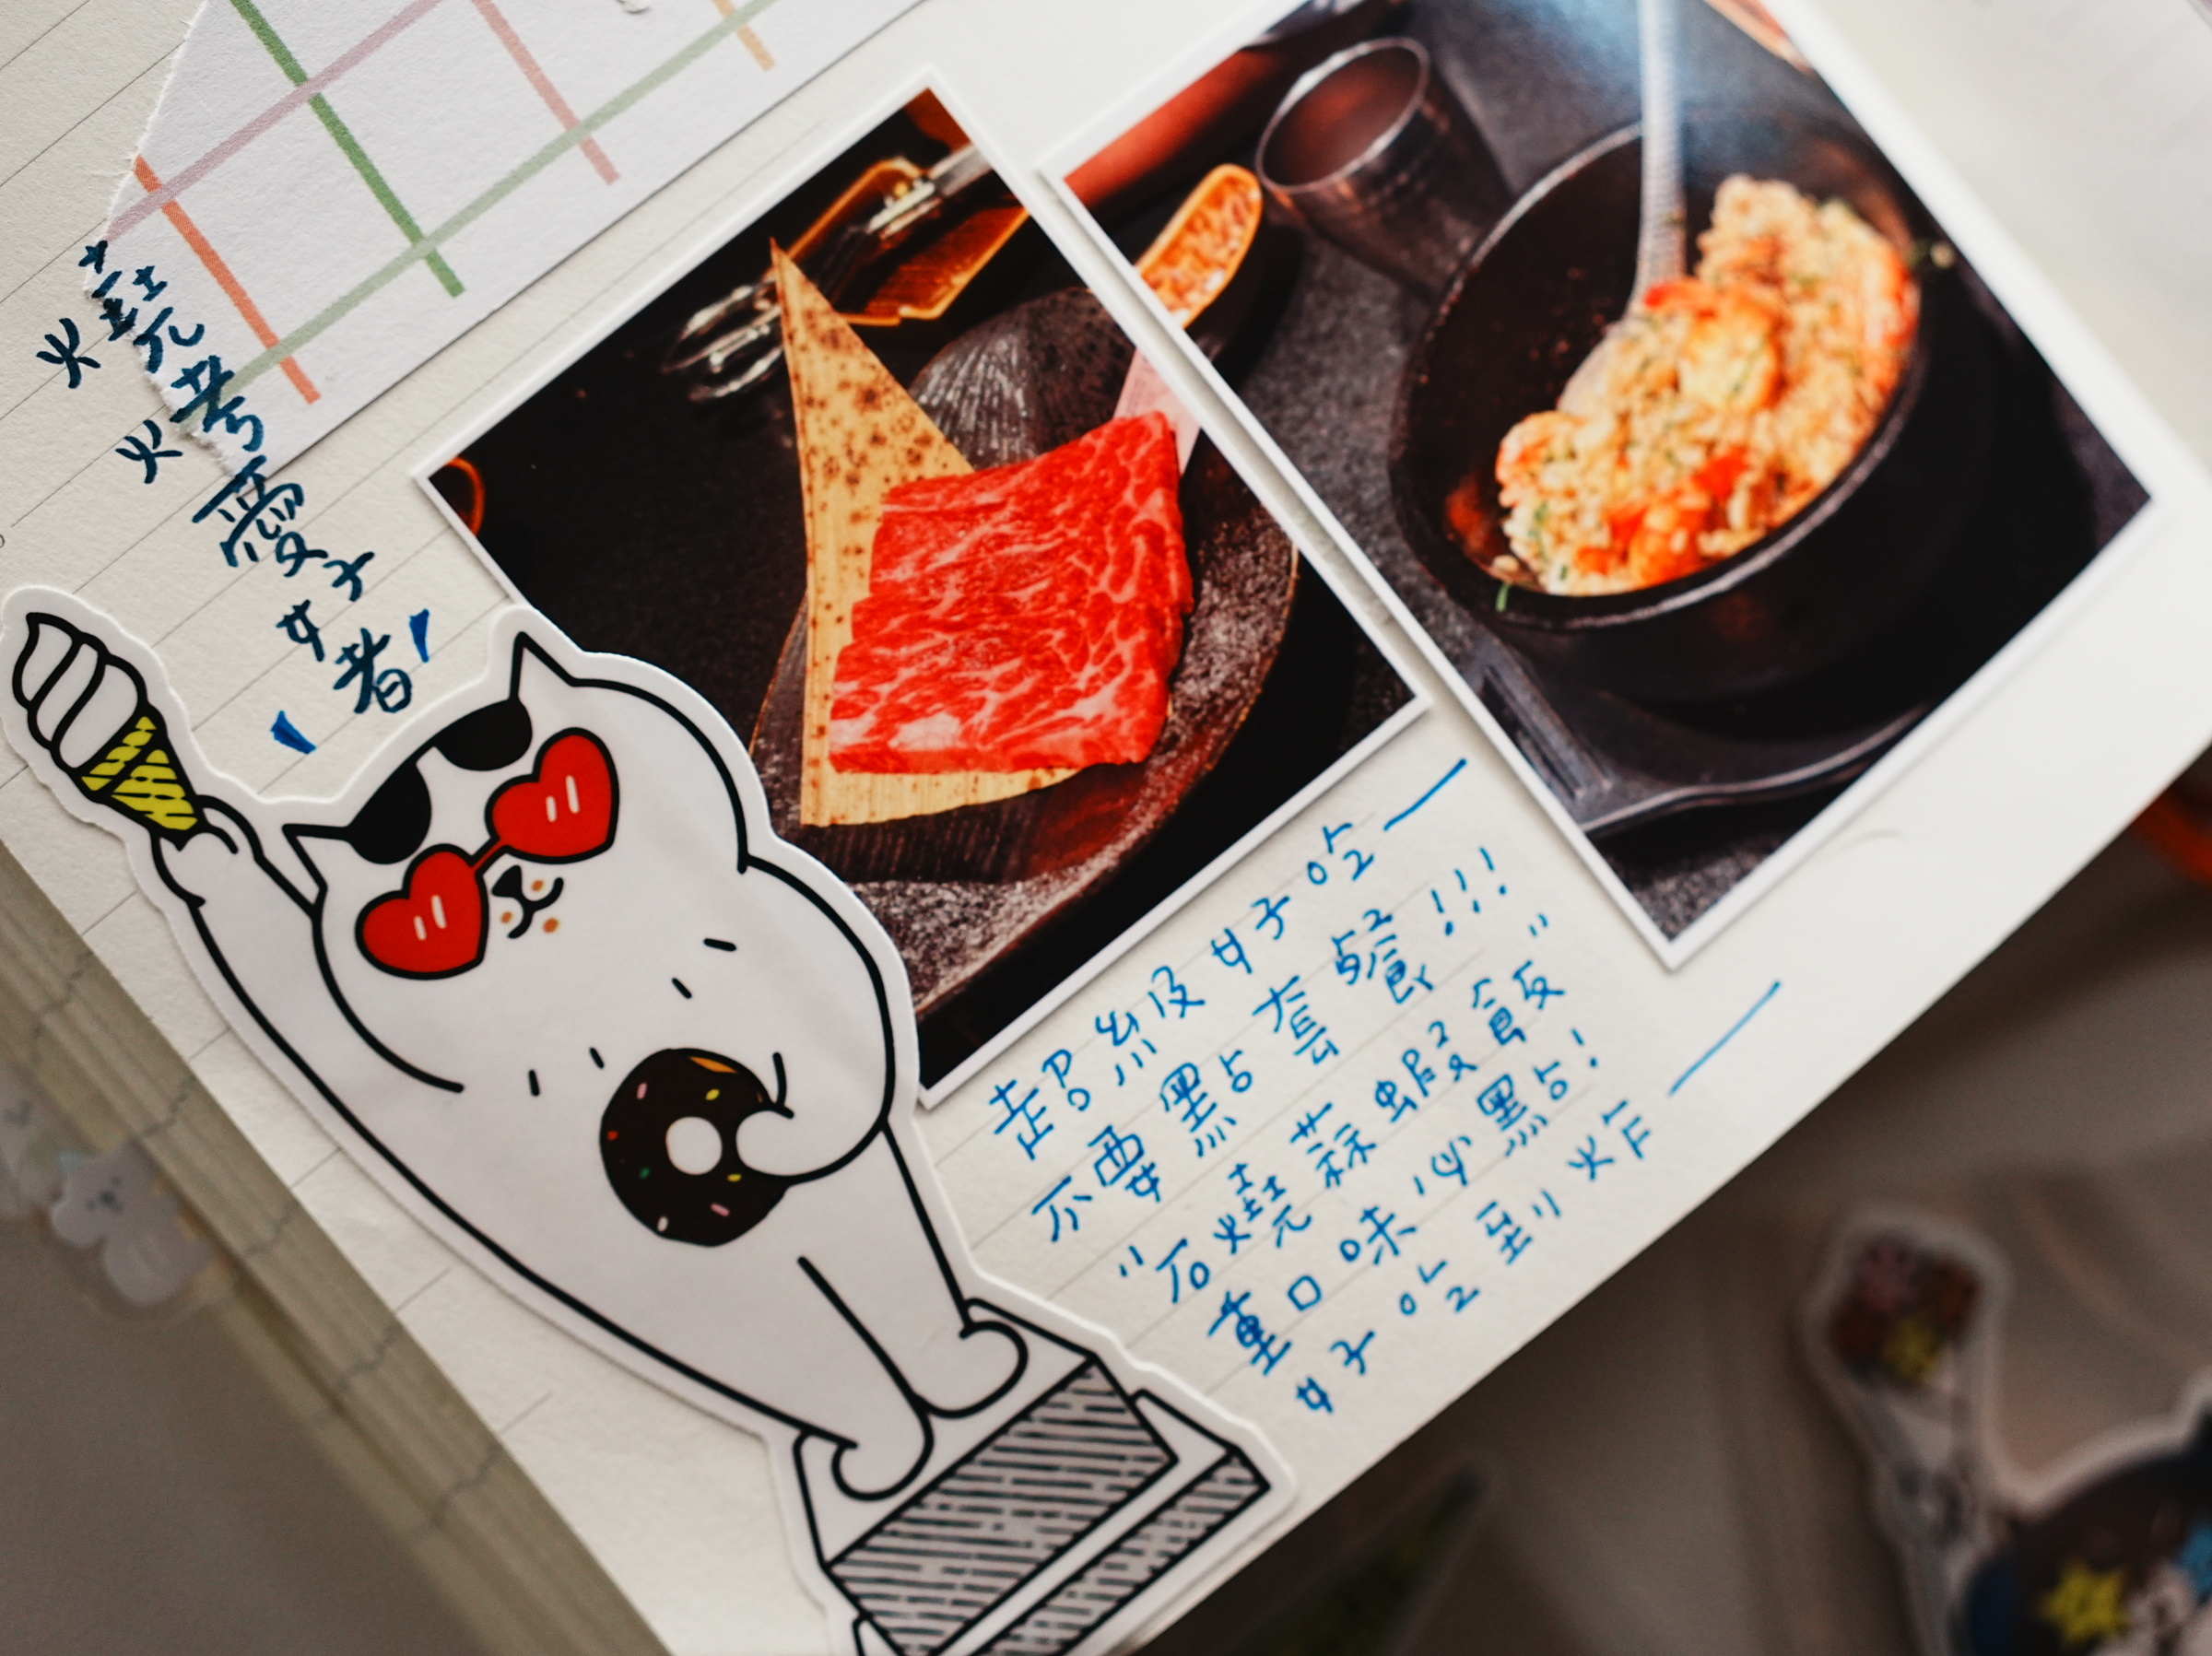 燒烤愛好者
超級好吃—
不要點套餐!!!
"石燒蒜蝦飯"
重口味必點!
好吃到炸—